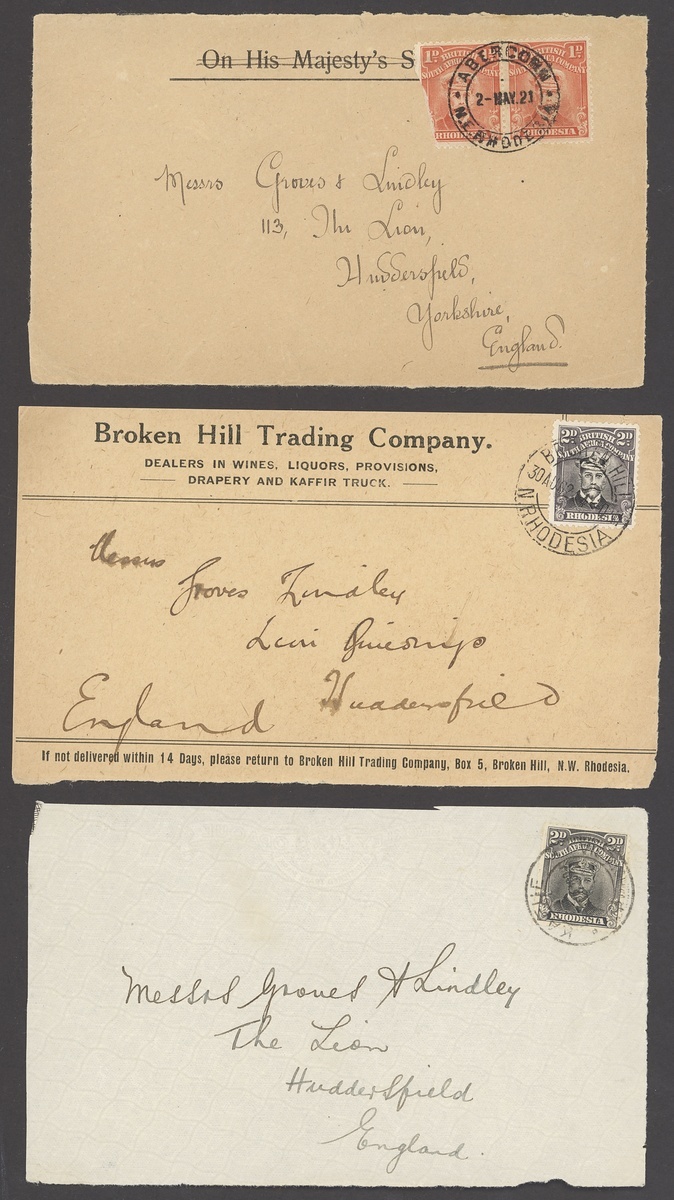 On His Majesty's S
1D BRITISH 1D
SOUTH AFRICA COMPANY
RHODESIA
BRITISH 1D
COMPANY
RHODESIA
ABERCORN
2-MAY.21
N.E. RHODESIA
Messrs Groves & Lindley
113, The Lion,
Huddersfield,
Yorkshire,
England.
Broken Hill Trading Company.
DEALERS IN WINES, LIQUORS, PROVISIONS,
DRAPERY AND KAFFIR TRUCK.
2D BRITISH 2D
SOUTH AFRICA COMPANY
RHODESIA
HILL
30 AU
N RHODESIA
Messrs
Groves Lindley
Huddersfield
England
If not delivered within 14 Days, please return to Broken Hill Trading Company, Box 5, Broken Hill, N.W. Rhodesia.
2D BRITISH 2D
SOUTH AFRICA COMPANY
RHODESIA
Messrs Groves & Lindley
The Lion
Huddersfield
England.